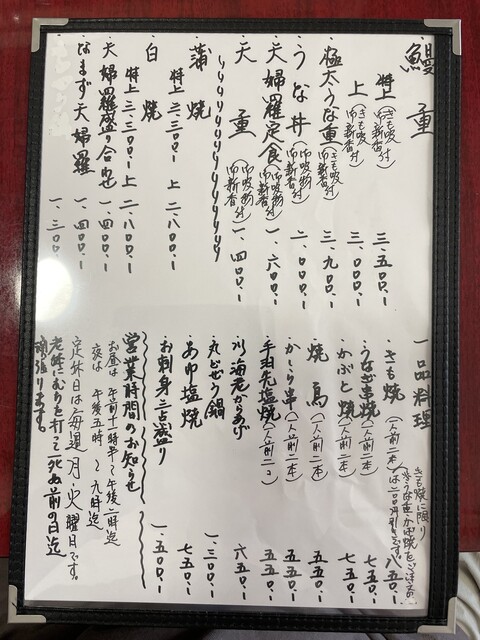 鰻重
特上(きも吸御新香付) 三、五〇〇、ー
上(きも吸御新香付) 三、〇〇〇、ー
極太うな重(きも吸御新香付) 三、九〇〇、ー
うな丼(御吸物御新香付) 二、〇〇〇、ー
天婦羅定食(御吸物御新香付) 一、六〇〇、ー
天重(御吸物御新香付) 一、四〇〇、ー
蒲焼
特上 三、三〇〇、ー 上 二、八〇〇、ー
白焼
特上 三、三〇〇、ー 上 二、八〇〇、ー
天婦羅盛り合わせ 一、四〇〇、ー
なまず天婦羅 一、三〇〇、ー
一品料理
きも焼に限り
きも焼(一人前二本) 八五〇、ー
うなぎ串焼(一人前二本) 七五〇、ー
かぶと焼(一人前二本) 七五〇、ー
焼鳥(一人前二本) 五五〇、ー
かしら串(一人前二本) 五五〇、ー
手羽先塩焼(一人前二コ) 五五〇、ー
川海老からあげ 六五〇、ー
丸どぜう鍋 一、三〇〇、ー
あゆ塩焼 七五〇、ー
お刺身三点盛り 一、五〇〇、ー
営業時間のお知らせ
お昼は 午前十一時半〜午後二時迄
夜は 午後五時〜九時迄
定休日は毎週月火曜日です。
老体にむちを打て死ぬ前の日迄
頑張ります。